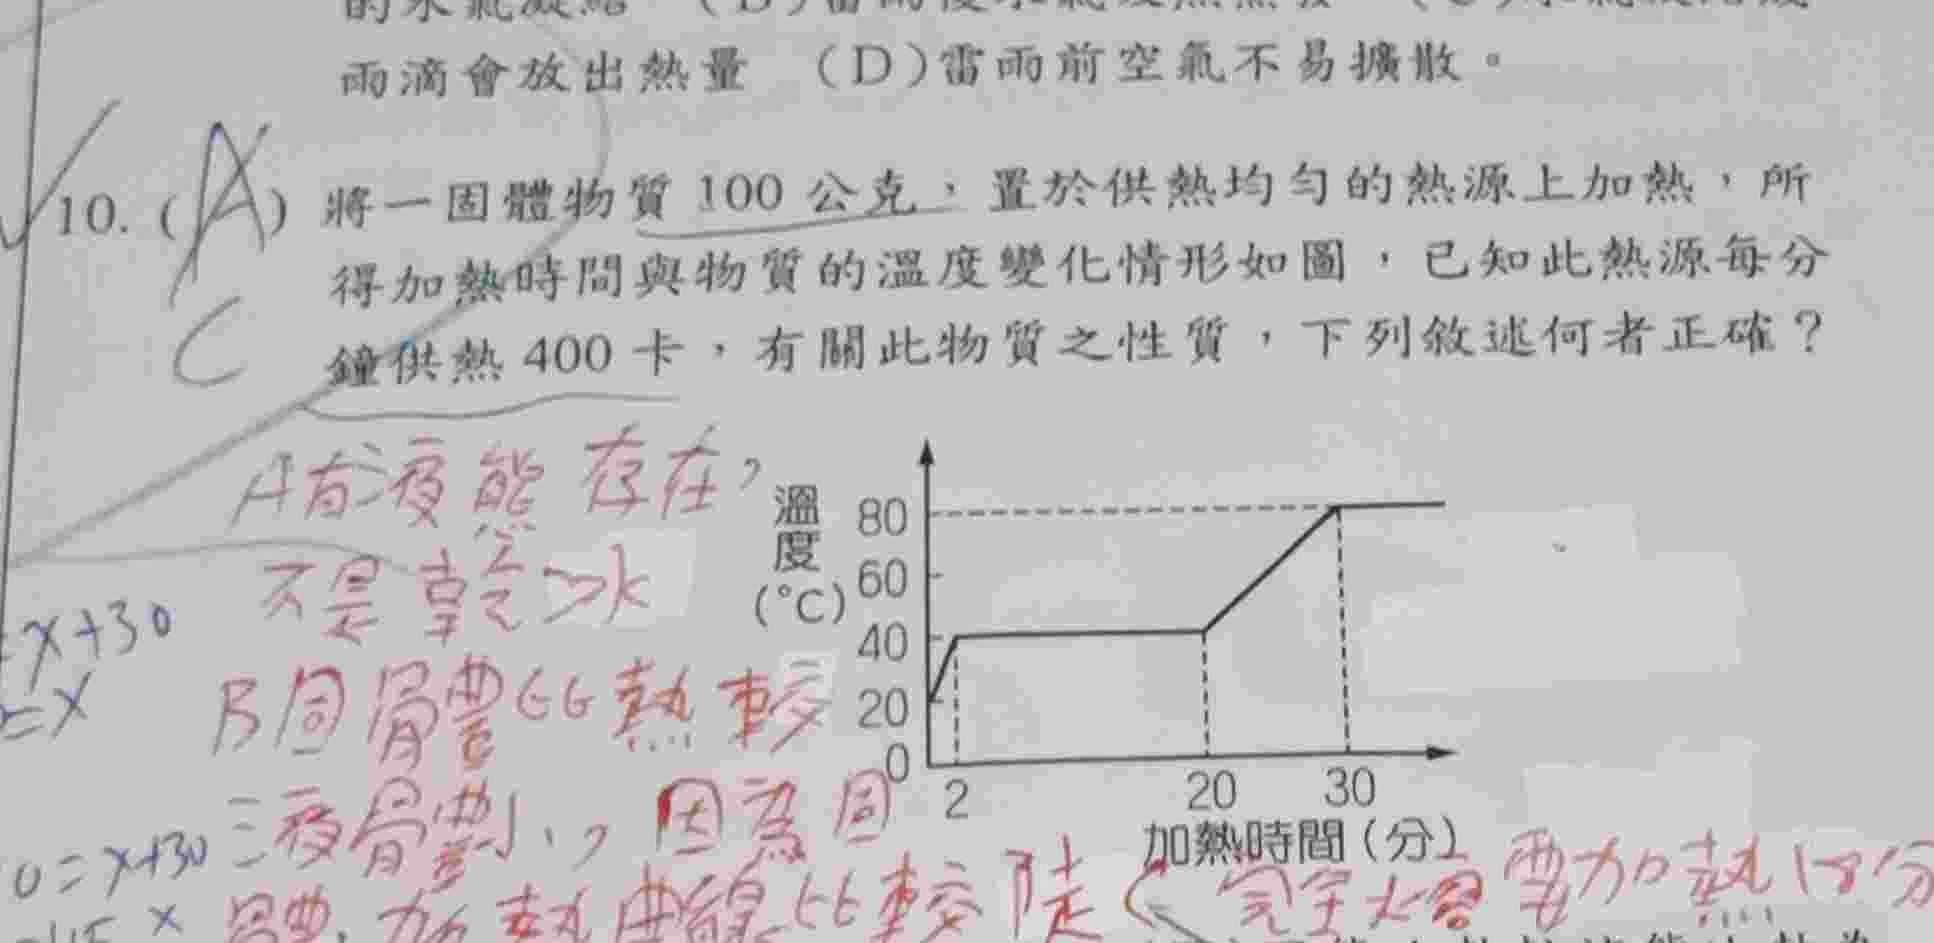 雨滴會放出熱量 (D)雷雨前空氣不易擴散。
10. (A) 將一固體物質100公克，置於供熱均勻的熱源上加熱，所
得加熱時間與物質的溫度變化情形如圖，已知此熱源每分
C
鐘供熱400卡，有關此物質之性質，下列敘述何者正確？
A有液態存在，
不是乾冰
=x+30
=x
B固體比熱較
液體小，因為固
0=x+30
體加熱曲線比較陡
完全火容要加熱18分
溫度(°C)
80
60
40
20
0
2
20
30
加熱時間(分)